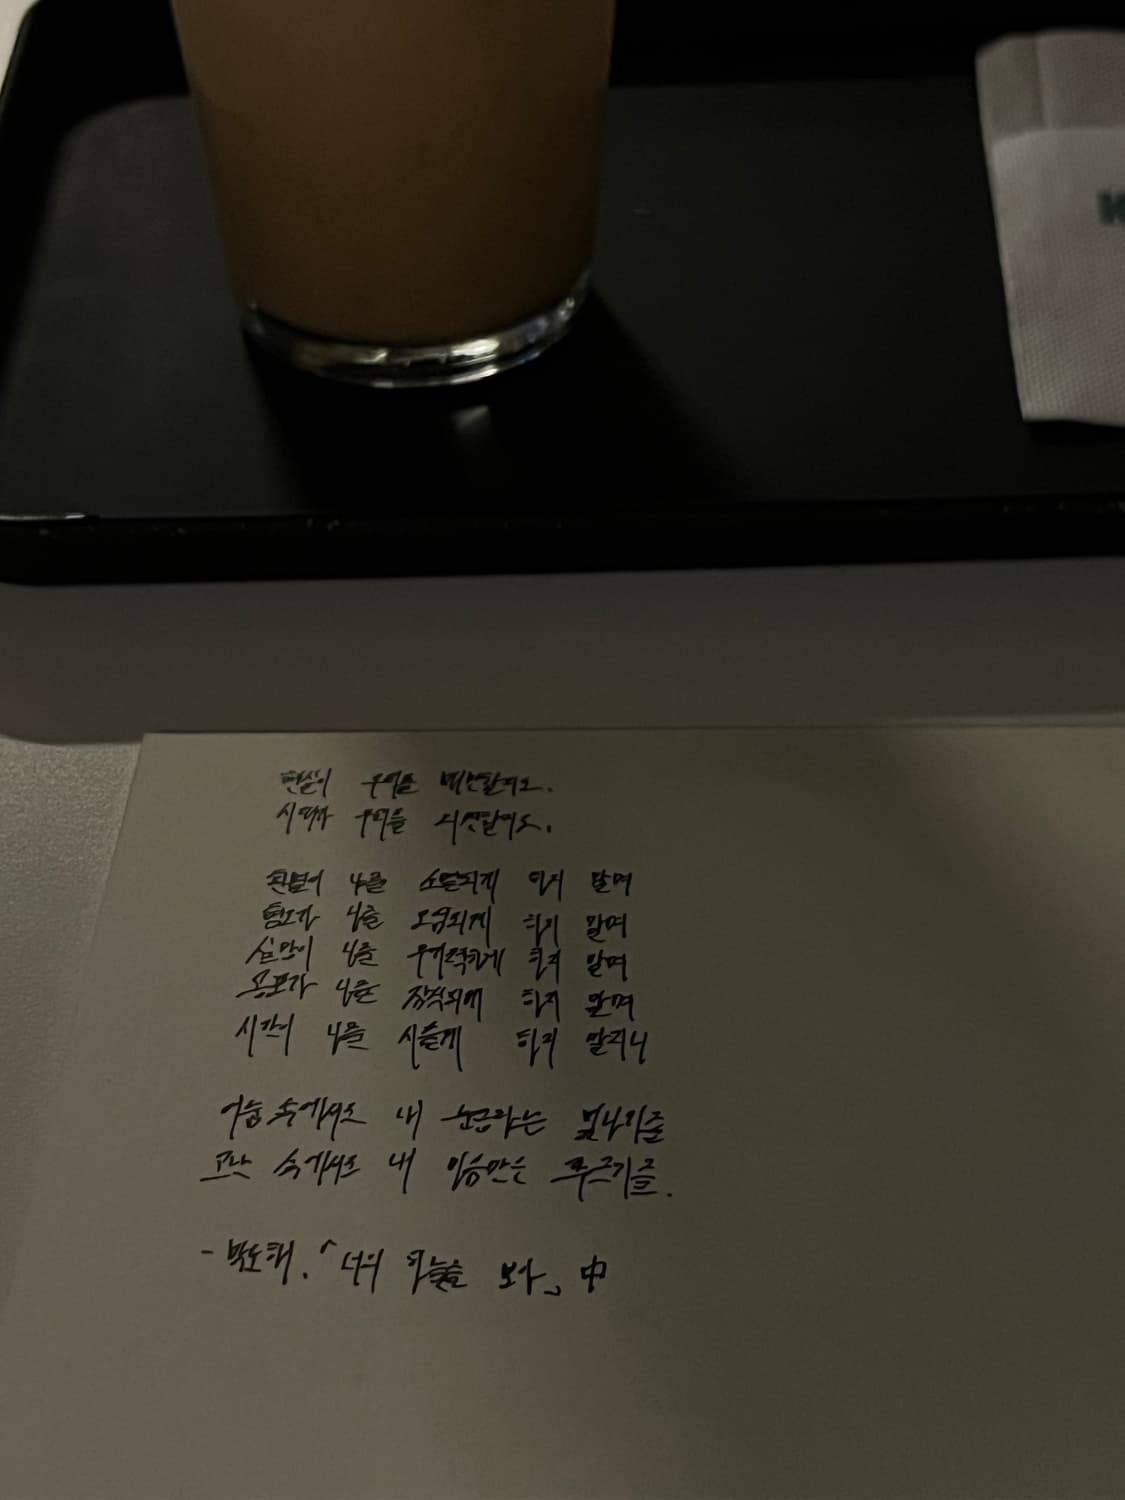 현실이 우리를 배신할지라도.
시대가 우리를 외면할지라도.
편법이 나를 소란되게 하지 말며
혐오가 나를 오염되게 하지 말며
실망이 나를 무기력하게 하지 말며
공포가 나를 잠식되게 하지 말며
시간이 나를 시들게 하지 말지니
어둠 속에서도 내 눈금하는 빛나기를
고난 속에서도 내 믿음만은 푸르기를.
- 박노해. 「너의 하늘을 보아」 中